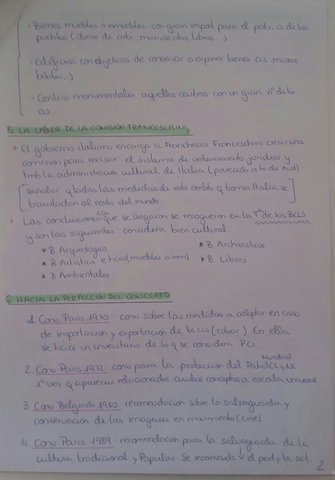 - Bienes muebles o inmuebles con gran import para el patri cu de los
pueblos (obras de arte, manuscritos libros..)
- Edificios con objetivos de conservar o exponer bienes cus museos
biblio..)
- Centros monumentales aquellos centros con un gran nº de bs
cus
5. LA LABOR DE LA COMISIÓN FRANCESCHINI
El gobierno italiano encarga a Francesco Franceschini crear una
comision para revisar el sistema de ordenamiento jurídico y
tmb la administración cultural de Italia (parecido a la de
Señalar q todas las medidas de este ámbito q toma Italia se
trasladan al resto del mundo
Las conclusiones a las que se llegaron se recogieron en la Tª de los BCUS
y son las siguientes considera bien cultural
* B Arqueológico
* B Archivísticos
* B Artístico e hcos (muebles o inm)
* B Libros
* B Ambientales
6. HACIA LA PERFECCIÓN DEL CONCEPTO
1 Conv Paris 1970 conv sobre las medidas a adoptar en caso
de importación y exportación de bs cus (robar). En ella
se hacía un inventario de lo q se considera PCu
2 Conv Paris 1972 conv para la protección del Patri Mundial CU y N
1ª vez q aparecían relacionados ambos conceptos a escala universal
3 Conv Belgrado 1980 recomendación sobre la salvaguarda y
conservación de las imágenes en movimiento (cine)
4 Conv Paris 1989 recomendación para la salvaguarda de la
cultura tradicional y Popular Se recomienda el
2